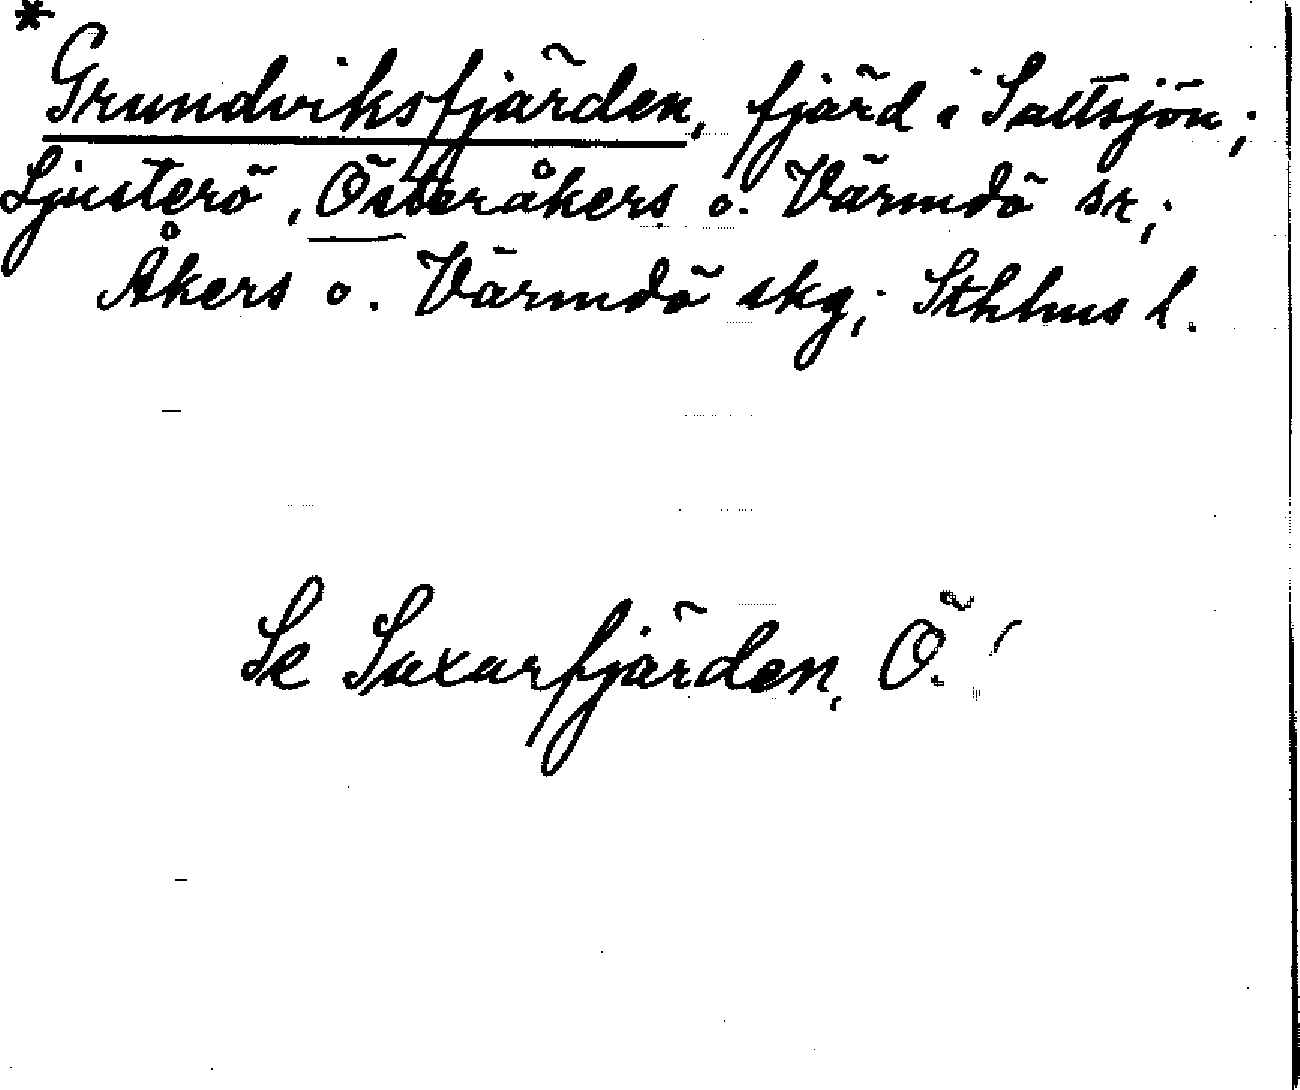 *
Grundviksfjärden, fjärd i Saltsjön;
Ljusterö, Österåkers o. Värmdö sr;
Åkers o. Värmdö skg; Sthlms l.
Se Saxarfjärden, Ö.